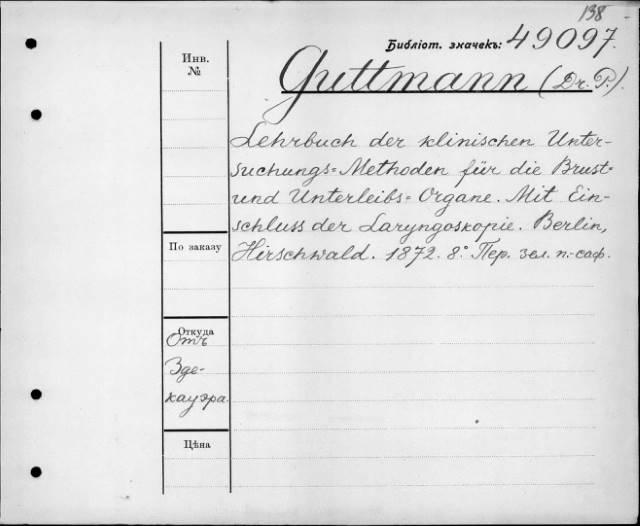 138
Библіот. значекъ: 49097.
Инв.
№
Guttmann (Dr. P.).
Lehrbuch der klinischen Unter-
suchungs=Methoden für die Brust=
und Unterleibs=Organe. Mit Ein-
schluss der Laryngoskopie. Berlin,
Hirschwald. 1872. 8°. Пер. зел. п.-саф.
По заказу
Откуда
Отъ
Зде-
кауэра.
Цѣна